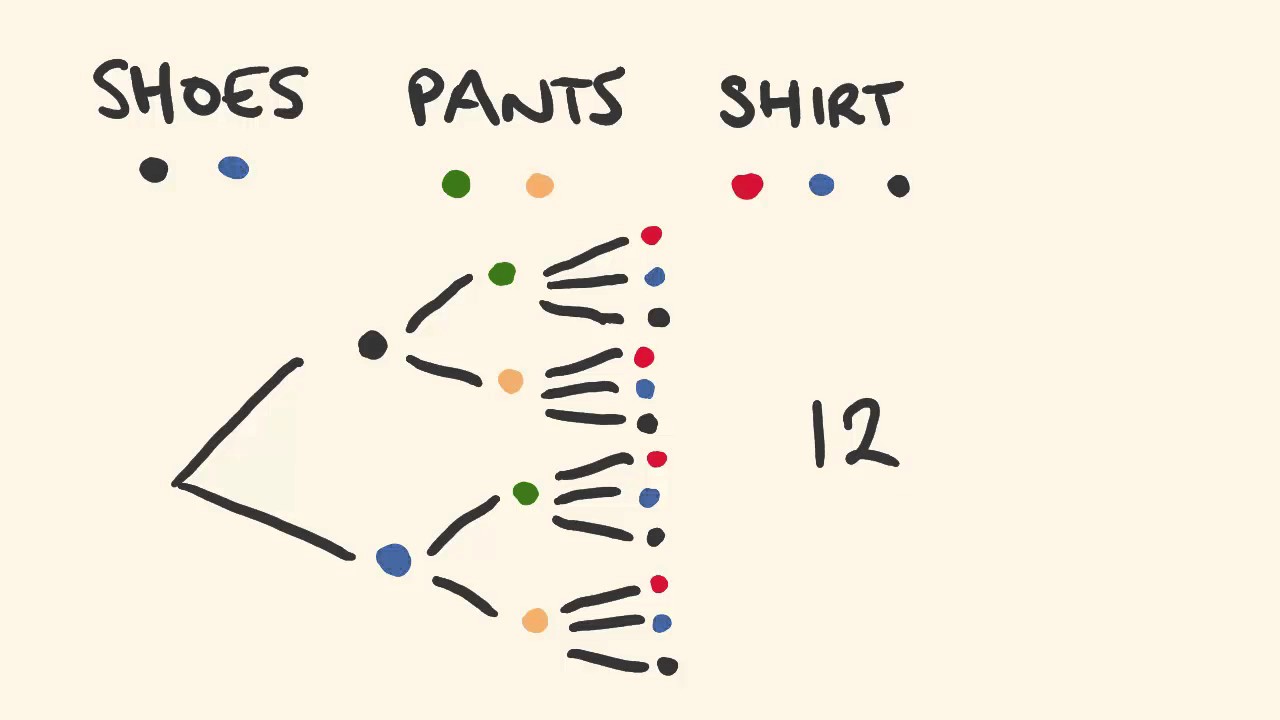 SHOES PANTS SHIRT
12